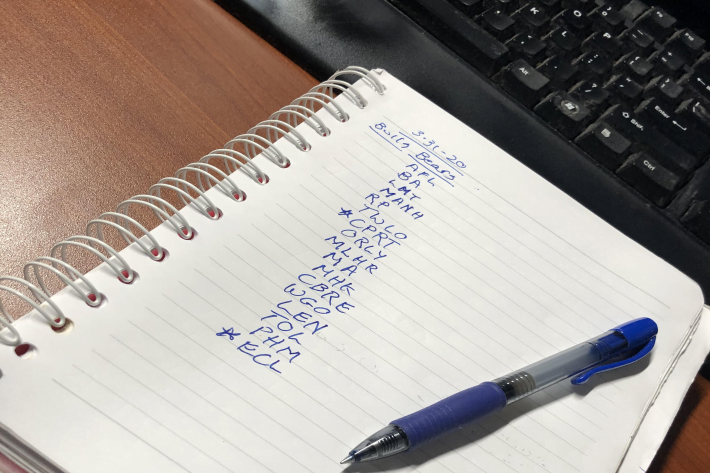 3-31-20
Bulls Bears
APL
BA
LMT
MANH
RP
TWLO
* CPRT
ORLY
MLHR
MA
MHK
CBRE
WGO
LEN
TOL
PHM
* ECL
Alt
Enter
Shift
Ctrl